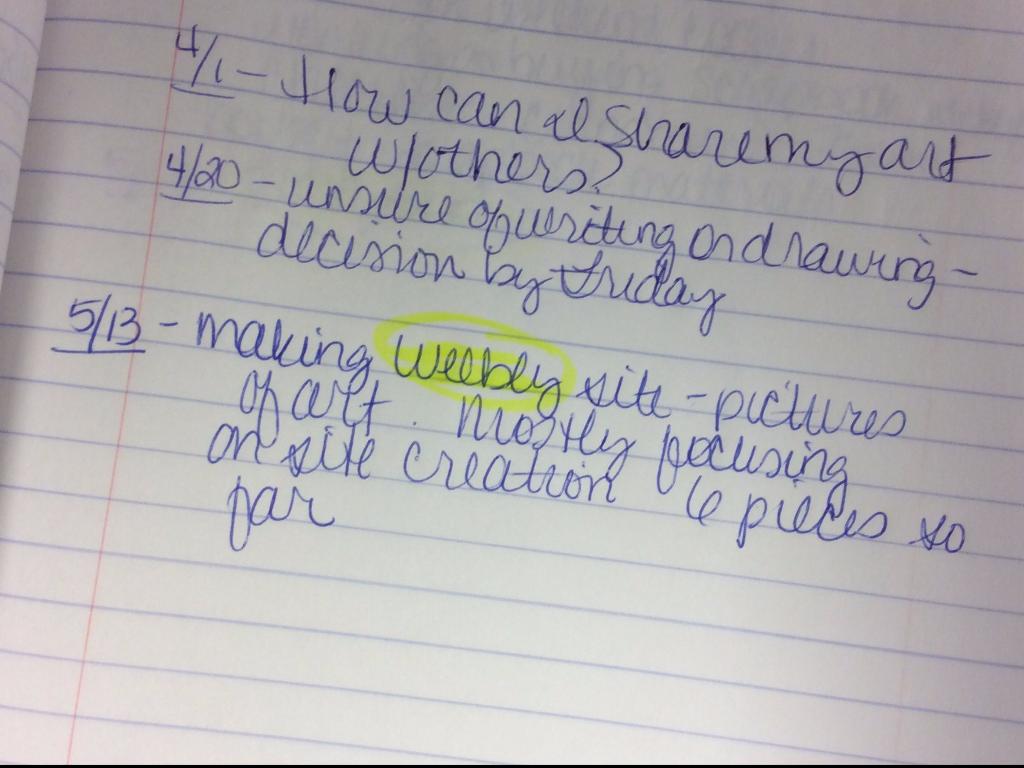 4/1 - How can I share my art
w/others?
4/20 - unsure of writing or drawing -
decision by Friday
5/13 - making weebly site - pictures
of art. Mostly focusing
on site creation 6 pieces so
far